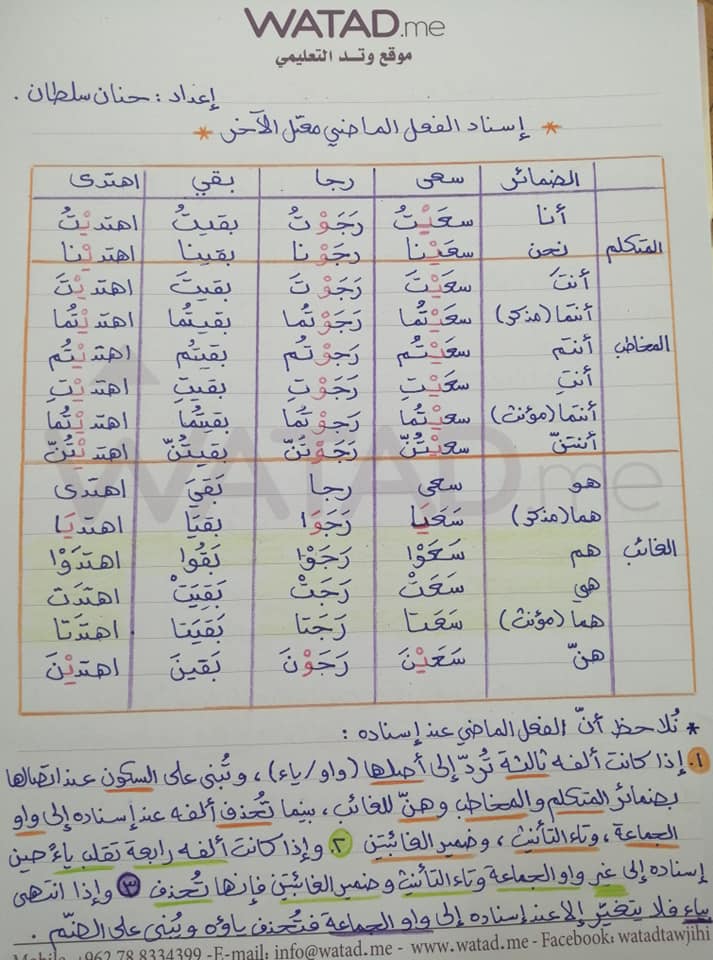 WATAD.me
موقع وتد التعليمي
إعداد : حنان سلطان .
* إسناد الفعل الماضي معتل الآخر *
الضمائر سعى رجا بقي اهتدى
المتكلم أنا سعَيْتُ رَجَوْتُ بقيتُ اهتديْتُ
نحن سعَيْنا رَجَوْنا بقينا اهتديْنا
المخاطب أنتَ سعَيْتَ رَجَوْتَ بقيتَ اهتديْتَ
أنتما (مذكر) سعَيْتُما رَجَوْتُما بقيتُما اهتديْتُما
أنتم سعَيْتُم رَجَوْتُم بقيتُم اهتديْتُم
أنتِ سعَيْتِ رَجَوْتِ بقيتِ اهتديْتِ
أنتما (مؤنث) سعَيْتُما رَجَوْتُما بقيتُما اهتديْتُما
أنتنّ سعَيْتُنّ رَجَوْتُنّ بقيتُنّ اهتديْتُنّ
الغائب هو سعى رجا بَقيَ اهتدى
هما (مذكر) سَعَيَا رَجَوَا بقيَا اهتديَا
هم سَعَوْا رَجَوْا بَقُوا اهتدَوْا
هي سَعَتْ رَجَتْ بَقِيَتْ اهتدَت
هما (مؤنث) سَعَتا رَجَتا بَقيَتا اهتدَتا
هنّ سَعَيْنَ رَجَوْنَ بَقينَ اهتديْنَ
* نُلاحظ أنّ الفعل الماضي عند إسناده :
١. إذا كانت ألفه ثالثة تُردّ إلى أصلها (واو/ياء) ، وتُبنى على السكون عند اتصالها
بضمائر المتكلم والمخاطب وهنّ للغائب ، بينما تُحذف ألفه عند إسناده إلى واو
الجماعة ، وتاء التأنيث ، وضمير الغائبتين ٢. وإذا كانت ألفه رابعة تقلب ياءً حين
إسناده إلى غير واو الجماعة وتاء التأنيث وضمير الغائبتين فإنها تُحذف ٣. وإذا انتهى
بياء فلا يتغيّر إلا عند إسناده إلى واو الجماعة فتُحذف ياؤه ويُبنى على الضّم .
Mobile +962 78 8334399 -E-mail: info@watad.me - www.watad.me - Facebook: watadtawjihi
WATAD.me